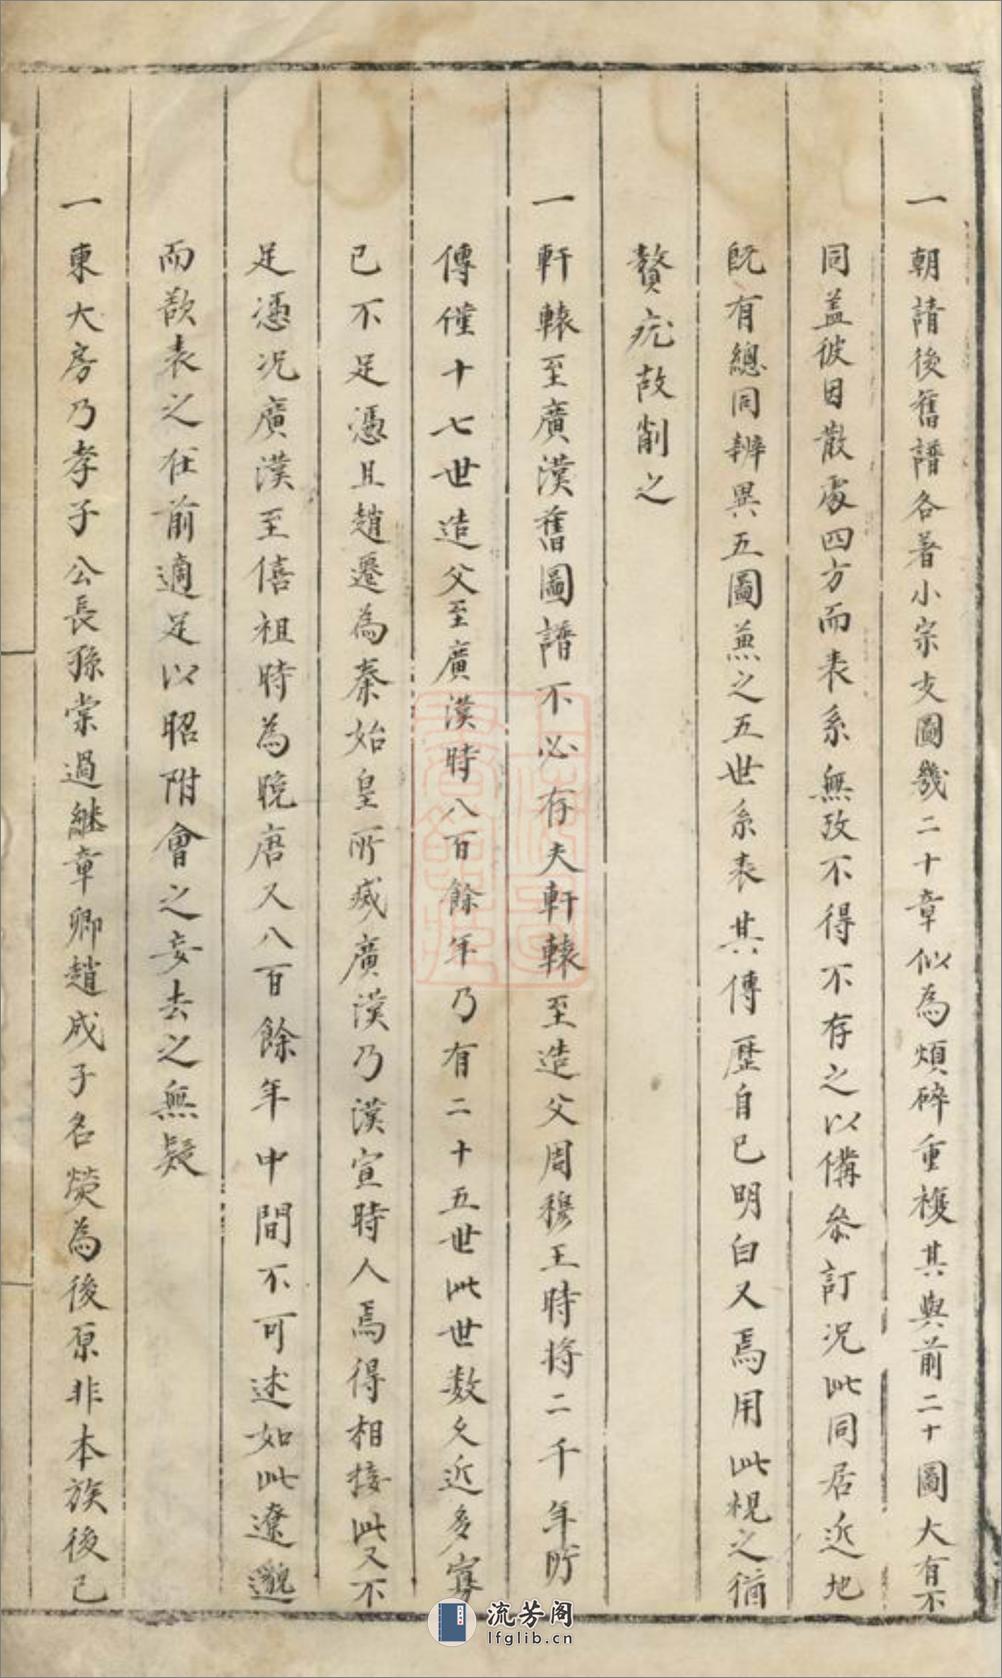 一朝請後舊譜各著小宗支圖幾二十章似為煩碎重複其與前二十圖大有不
同蓋彼因散處四方而表系無攷不得不存之以備叅訂况此同居近地
既有總同辨異五圖兼之五世系表其傳歷自已明白又焉用此視之猶
贅疣故削之
一軒轅至廣漢舊圖譜不必存夫軒轅至造父周穆王時將二千年所
傳僅十七世造父至廣漢時八百餘年乃有二十五世此世数久近多寡
已不足憑且趙遷為秦始皇所滅廣漢乃漢宣時人焉得相接此又不
足憑况廣漢至僖祖時為晚唐又八百餘年中間不可述如此遼邈
而歆表之在前適足以昭附會之妄去之無疑
一東大房乃孝子公長孫棠過継章卿趙成子名熒為後原非本族後已
流芳阁
lfglib.cn